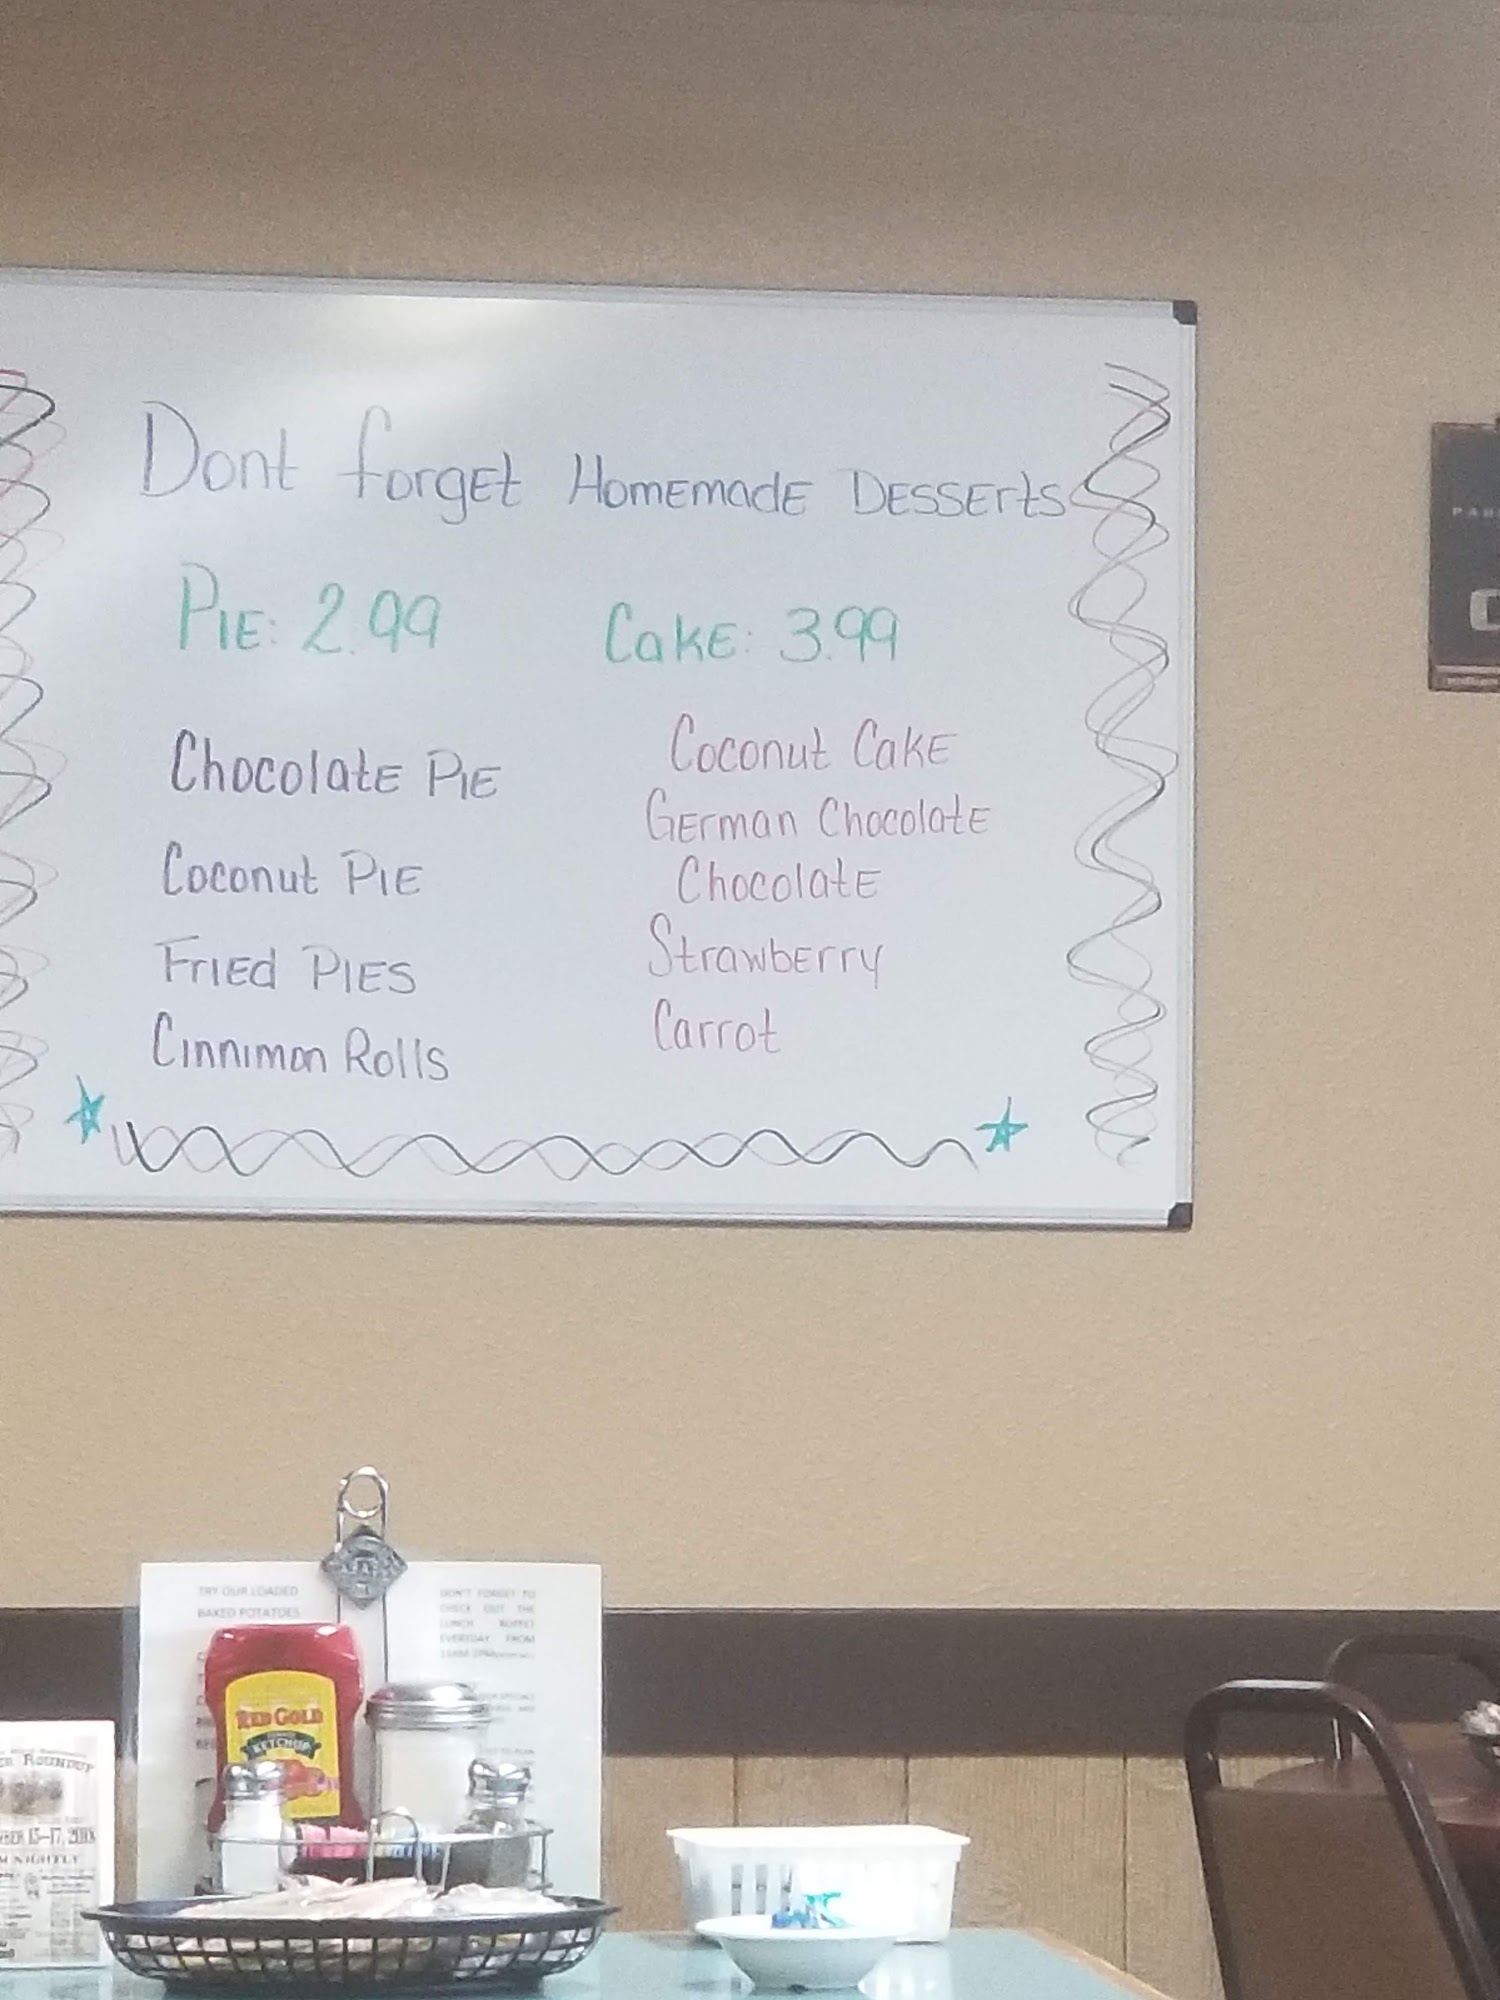 Dont forget Homemade Desserts
Pie: 2.99
Chocolate Pie
Coconut Pie
Fried Pies
Cinnimon Rolls
Cake: 3.99
Coconut Cake
German Chocolate
Chocolate
Strawberry
Carrot
TRY OUR LOADED
BAKED POTATOES
DON'T FORGET TO
CHECK OUT THE
LUNCH BUFFET
EVERYDAY FROM
RED GOLD
KETCHUP
ROUNDUP
NIGHTLY